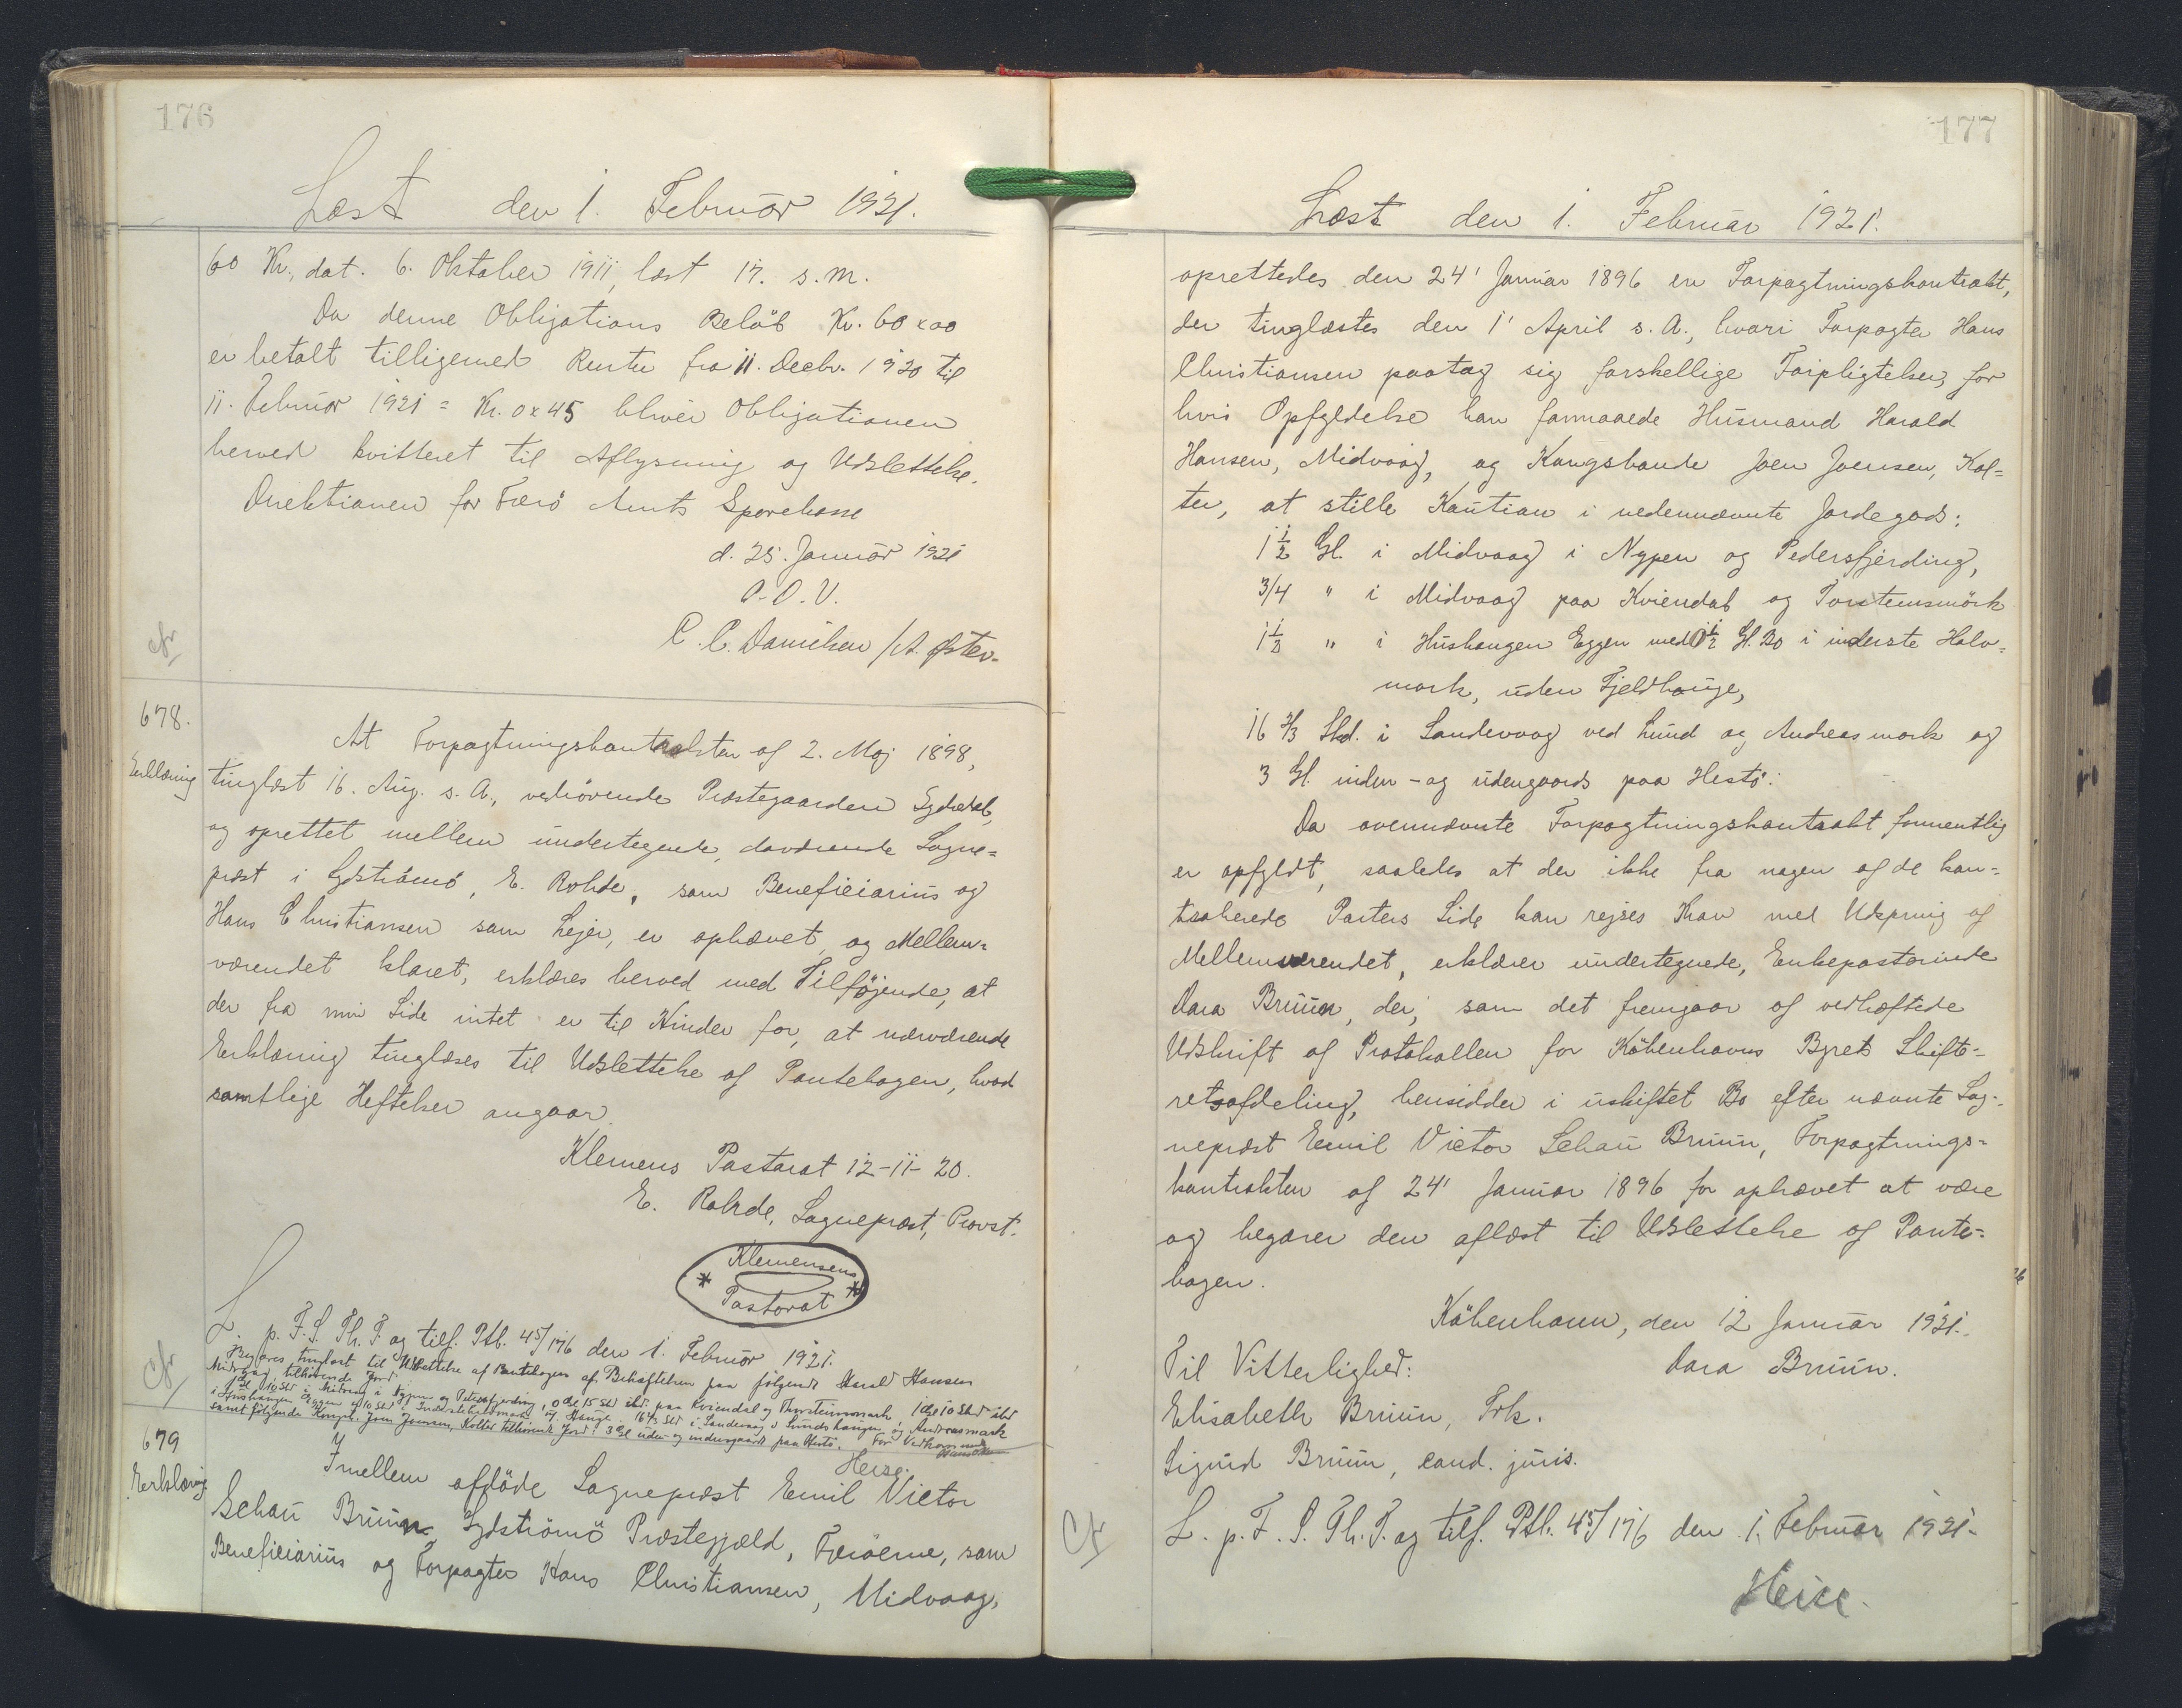 176
Læst den 1. Februar 1921.
60 Kr., dat. 6. Oktober 1911, læst 17. s.m.
Da denne Obligations Beløb Kr. 60 x 00
er betalt tilligemed Renter fra 11. Decbr. 1920 til
11. Februar 1921 = Kr. 0 x 45 bliver Obligationen
herved kvitteret til Aflysning og Udslettelse.
Direktionen for Færø Amts Sparekasse
d. 25. Januar 1921
P.D.V.
C. C. Danielsen / A. Øster.
cfr
678.
Erklæring
At Forpagtningskontrakten af 2. Maj 1898,
tinglæst 16. Aug. s. A., vedrørende Præstegaarden Sydradal,
og oprettet mellem undertegnede, daværende Sogne=
præst i Sydstrømø, E. Rohde, som Beneficiarius og
Hans Christiansen som Lejer, er ophævet og Mellem=
værendet klaret, erklæres herved med Tilføjende, at
der fra min Side intet er til Hinder for, at nærværende
Erklæring tinglæses til Udslettelse af Pantebogen, hvad
samtlige Heftelser angaar.
Klemens Pastorat 12-11-20.
E. Rohde, Sognepræst, Provst.
Klemensens
* *
Pastorat
L. p. F. S. Th. T. og tilf. Ptb. 45/176 den 1. Februar 1921.
Begæres tinglæst til Udslettelse af Pantebogen af Behæftelsen paa følgende Harald Hansen
Midvaag, tilhørende Jord
1 Gl 10 Skd i Midvaag i Nypen og Petersfjerding, 0 Gl 15 Skd ibd. paa Kviendal og Thorsteinsmark, 1 Gl 10 Skd ibd
i Hushaugen Eggen 10 Skd i Inderstehalvmark u. Hauge. 16 2/3 Skd i Sandevaag v Lunds haugen og Andreasmark
samt følgende Kongsb. Joen Joensen, Kolter tilhørende Jord: 3 Gl uden og indengaards paa Hestø. For Vedkommende
Heise.
cfr
679
Erklæring
Imellem afdøde Sognepræst Emil Victor
Schau Bruun, Sydstrømø Præstegjæld, Færøerne, som
Beneficiarius og Forpagter Hans Christiansen, Midvaag,
177
Læst den 1. Februar 1921.
oprettedes den 24' Januar 1896 en Forpagtningskontrakt,
der tinglæstes den 1' April s. A., hvori Forpagter Hans
Christiansen paatog sig forskellige Forpligtelser, for
hvis Opfyldelse han formaaede Husmand Harald
Hansen, Midvaag, og Kongsbonde Joen Joensen, Kol=
ter, at stille Kaution i nedennævnte Jordegods:
1 1/2 Gl. i Midvaag i Nypen og Pedersfjerding,
3/4 " i Midvaag paa Kviendal og Torsteinsmörk
1 1/2 " i Hushaugen Eggen med 1/2 Gl. Bo i inderste Halv=
mark, uden Fjeldhauge,
16 2/3 Skd. i Sandevaag ved Lund og Andreasmork og
3 Gl. inden- og udengaards paa Hestø:
Da ovennævnte Forpagtningskontrakt formentlig
er opfyldt, saaledes at der ikke fra nogen af de kon=
traherede Parters Side kan rejses Krav med Udspring af
Mellemværendet, erklærer undertegnede, Enkepastorinde
Dara Bruun, der, som det fremgaar af vedhæftede
Udskrift af Protokollen for Københavns Byrets Skifte-
retsafdeling, hensidder i uskiftet Bo efter nævnte Sog-
nepræst Emil Victor Schau Bruun, Forpagtnings=
kontrakten af 24' Januar 1896 for ophævet at være
og begærer den aflæst til Udslettelse af Pante=
bogen.
København, den 12 Januar 1921.
Til Vitterlighed: Dara Bruun.
Elisabeth Bruun, Frk.
Sigurd Bruun, cand. juris.
cfr
L. p. F. S. Th. T. og tilf. Ptb. 45/176 den 1. Februar 1921.
Heise.